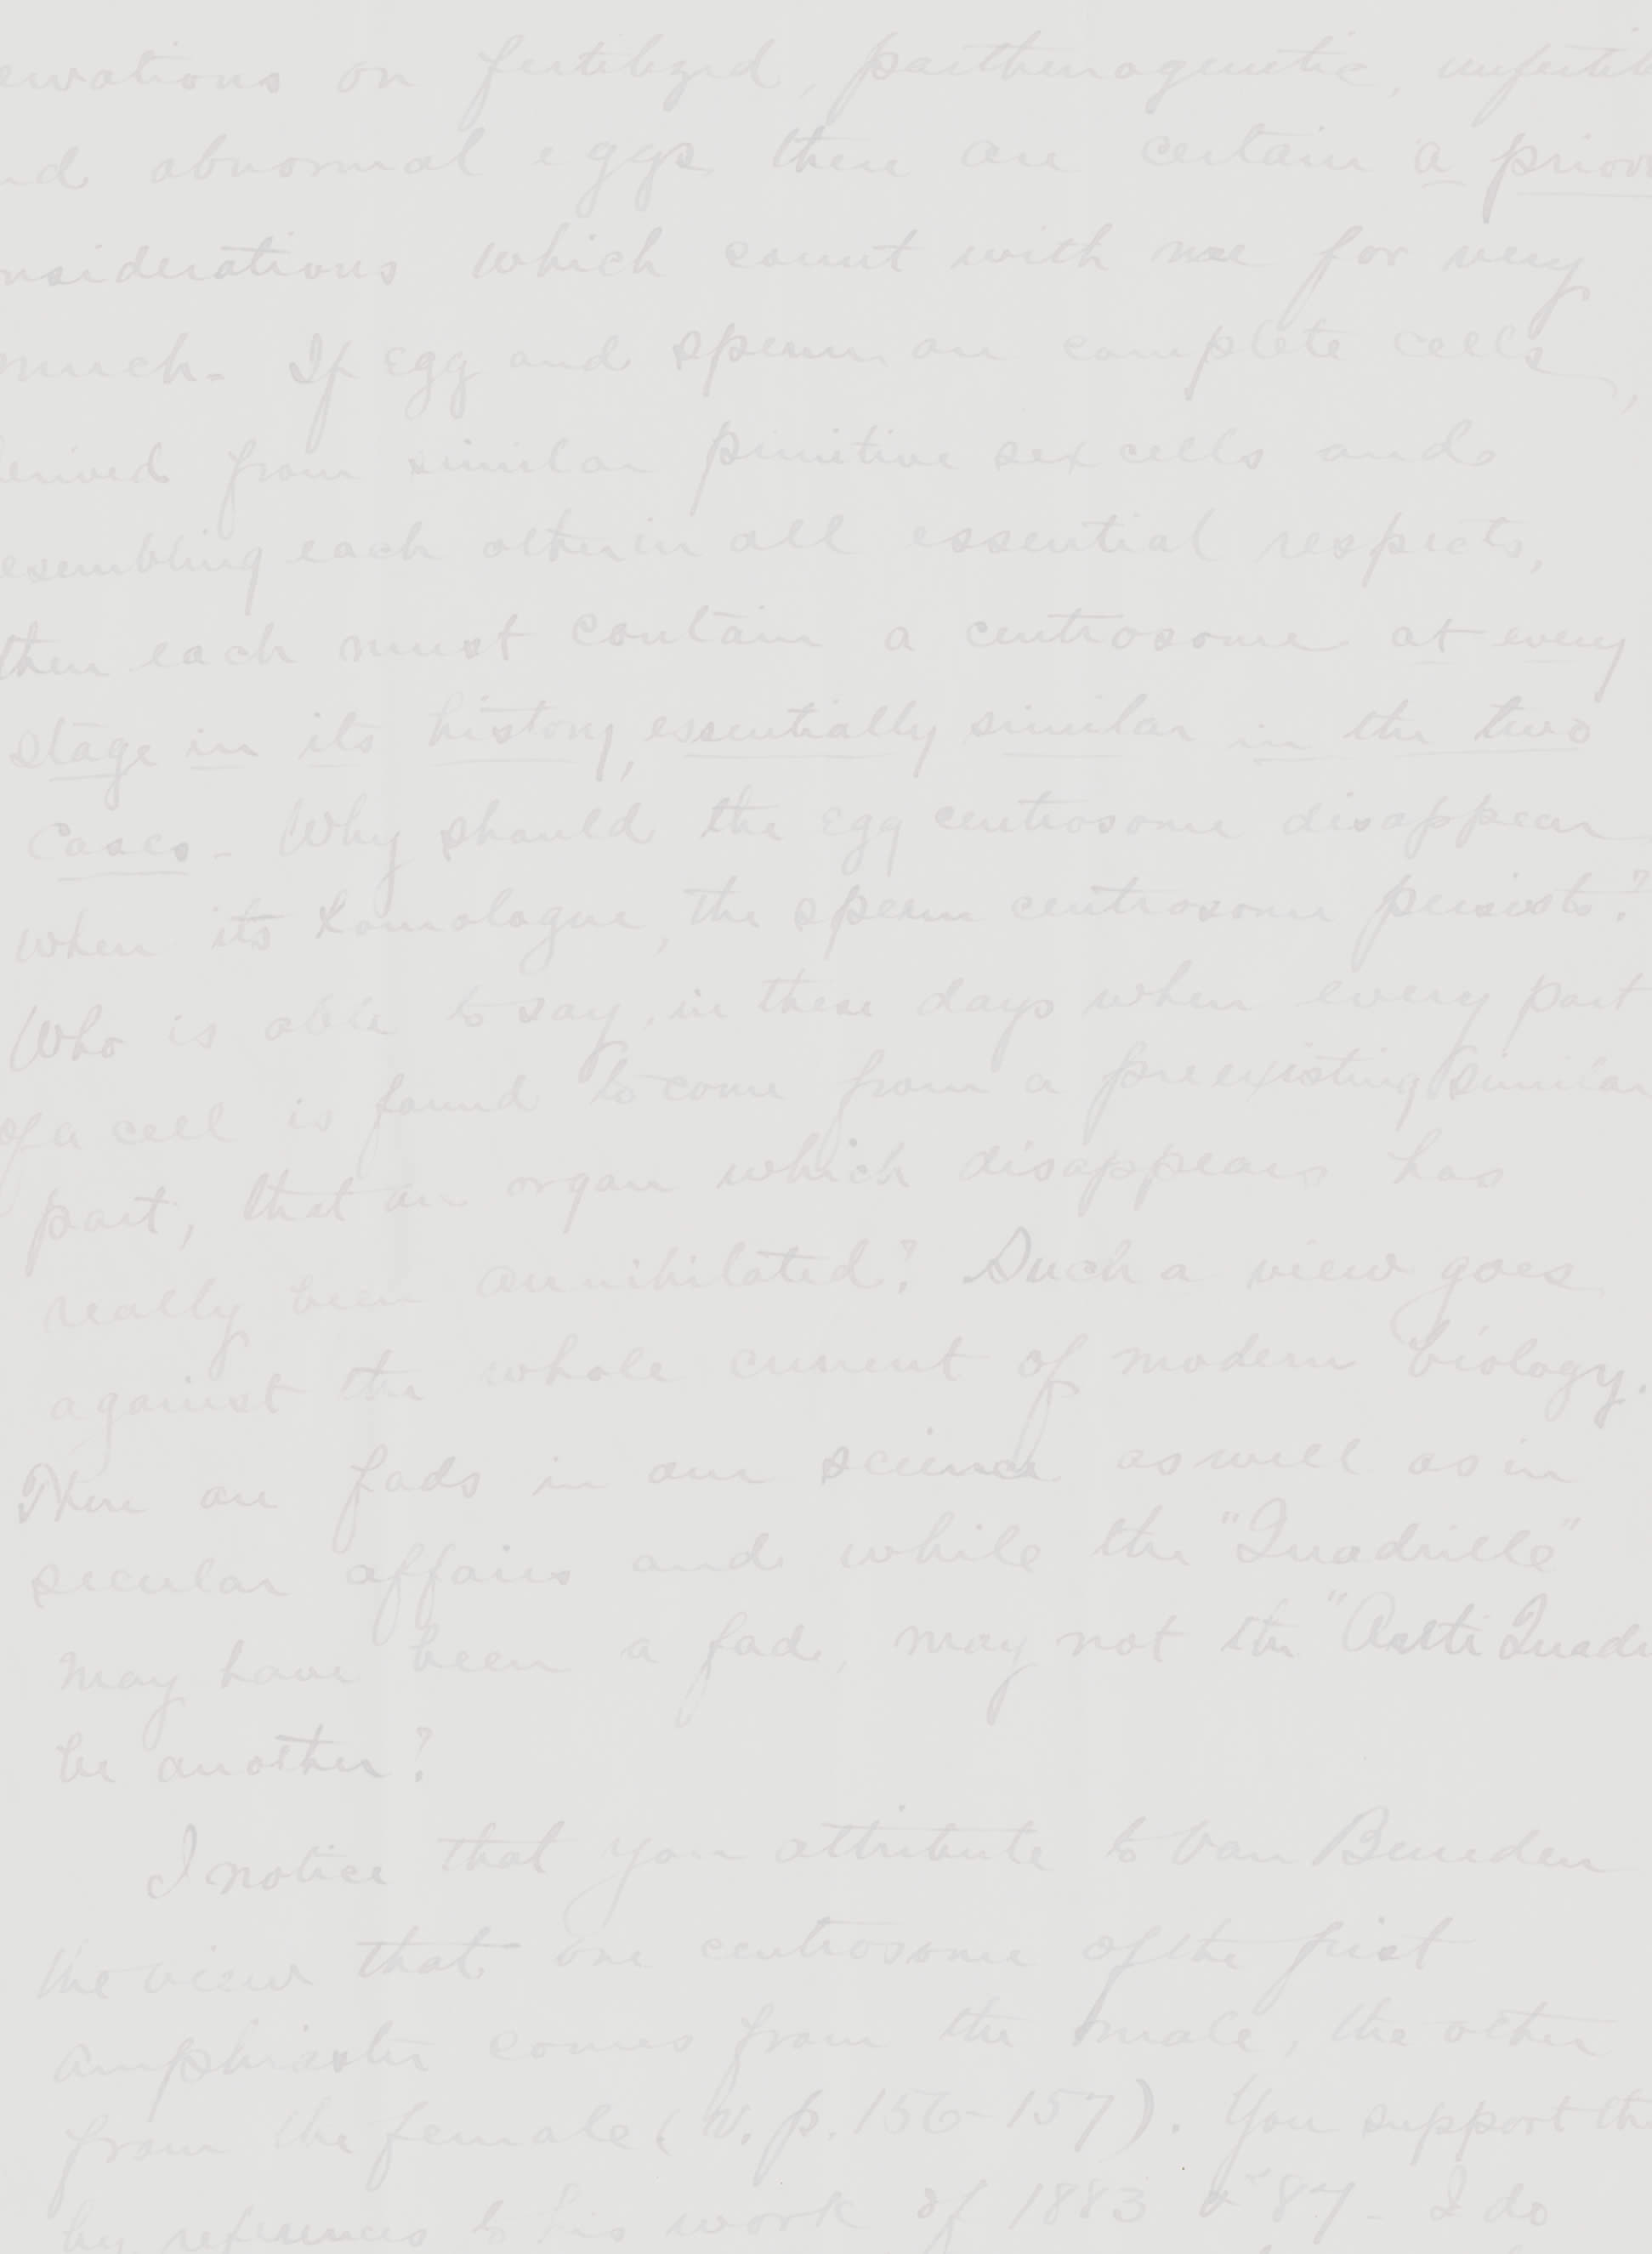 ervations on fertilized, parthenogenetic, unfertili
nd abnormal eggs there are certain a priori
nsiderations which count with me for very
much. If egg and sperm are complete cells,
erived from similar primitive sex cells and
esembling each other in all essential respects,
then each must contain a centrosome at every
stage in its history, essentially similar in the two
cases. Why should the egg centrosome disappear
when its homologue, the sperm centrosome persists?
Who is able to say, in these days when every part
of a cell is found to come from a preexisting similar
part, that an organ which disappears has
really been annihilated? Such a view goes
against the whole current of modern biology.
There are fads in our science as well as in
secular affairs and while the "Quadrille"
may have been a fad, may not the "Anti Quadr
be another?
I notice that you attribute to Van Beneden
the view that one centrosome of the first
amphiaster comes from the male, the other
from the female (v. p. 156-157). You support th
by references to his work of 1883 & '87. I do